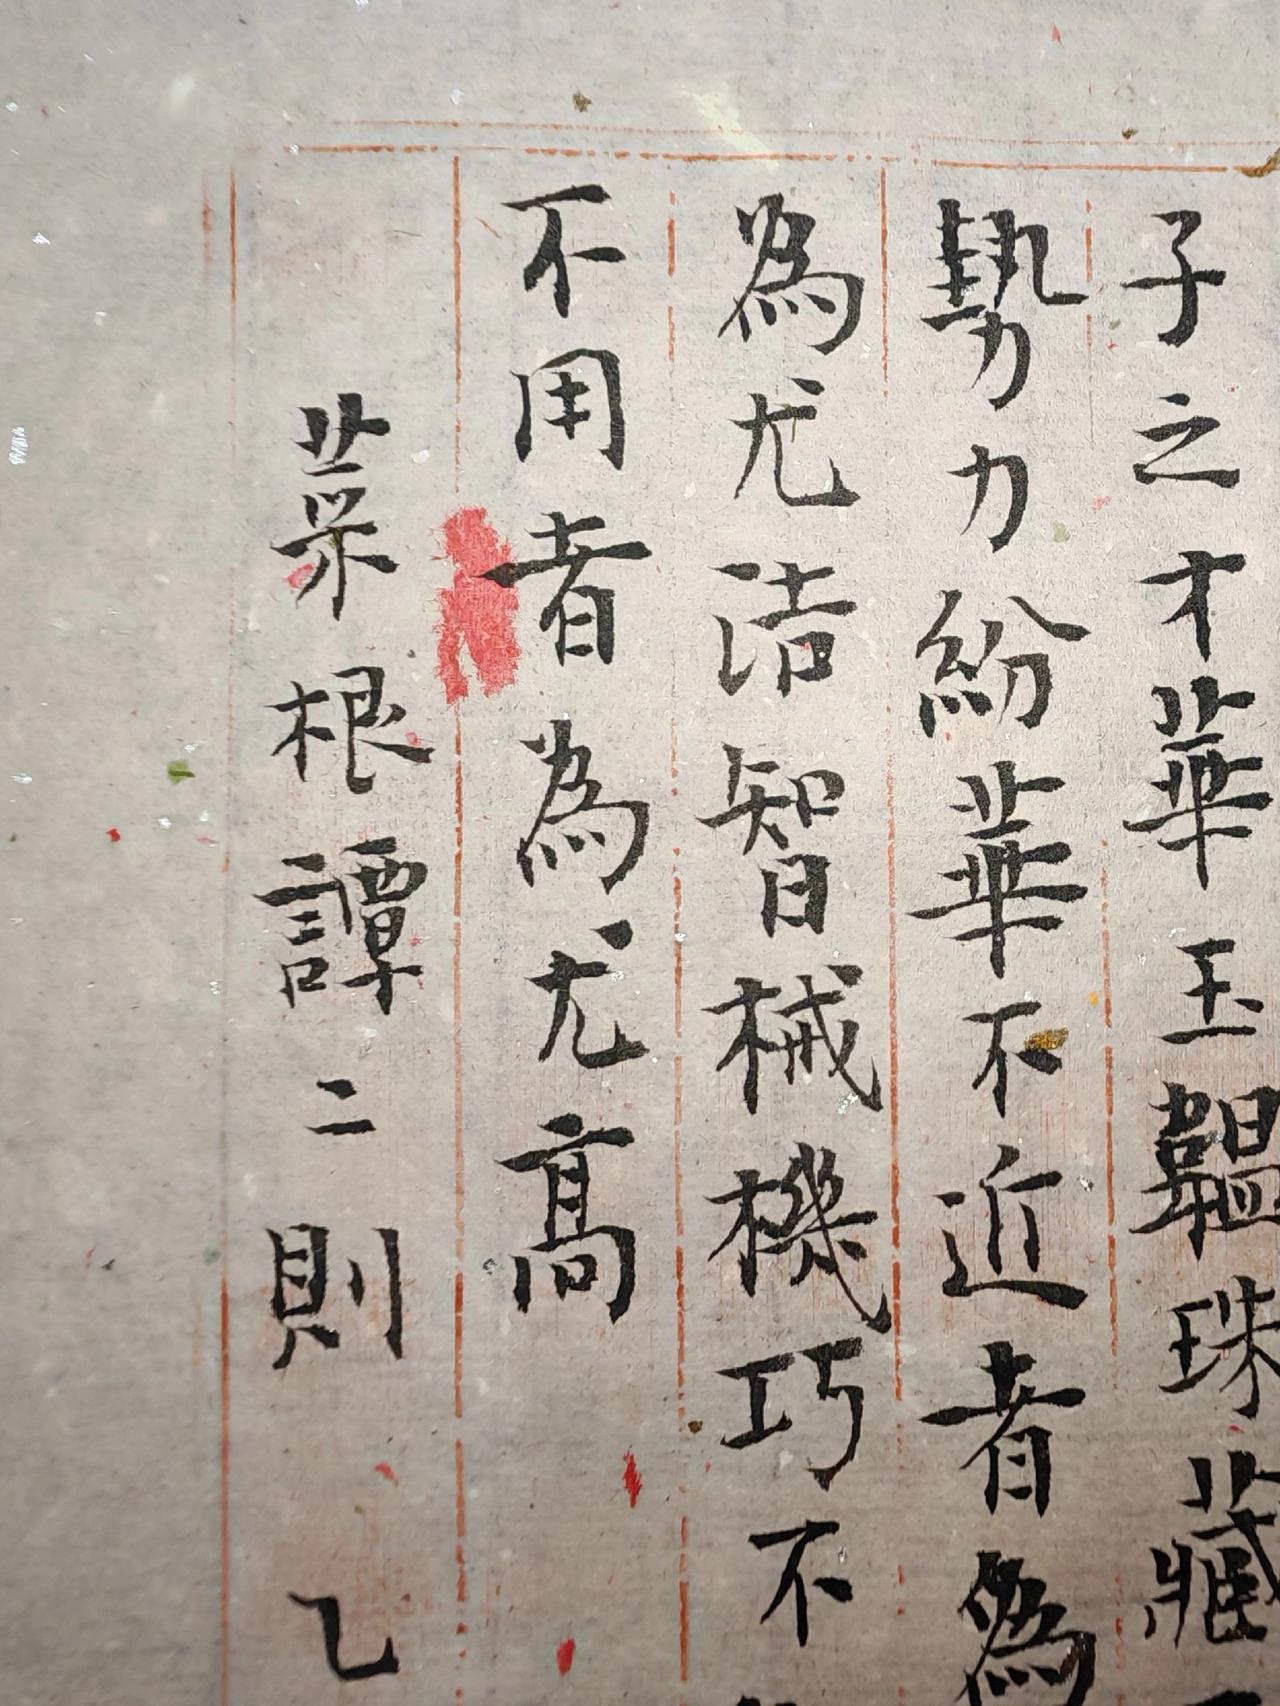 子之才華玉韞珠藏
勢力紛華不近者為
為尤洁智械機巧不
不用者為尤高
菜根譚二則 乙